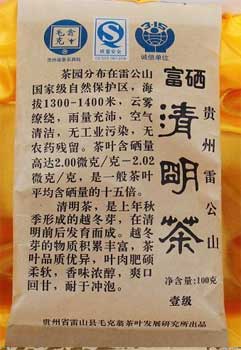 毛克翕
贵州省著名商标
质量安全
3·15
诚信单位
茶园分布在雷公山
国家级自然保护区，海
拔1300-1400米，云雾
缭绕，雨量充沛，空气
清洁，无工业污染，无
农药残留。茶叶含硒量
高达2.00微克/克-2.02
微克/克，是一般茶叶
平均含硒量的十五倍。
清明茶，是上年秋
季形成的越冬芽，在清
明前后发育而成。越冬
芽的物质积累丰富，茶
叶品质优异，叶肉肥硕
柔软，香味浓醇，爽口
回甘，耐于冲泡。
富硒
清明茶
贵州雷公山
净含量：100克
壹级
贵州省雷山县毛克翕茶叶发展研究所出品